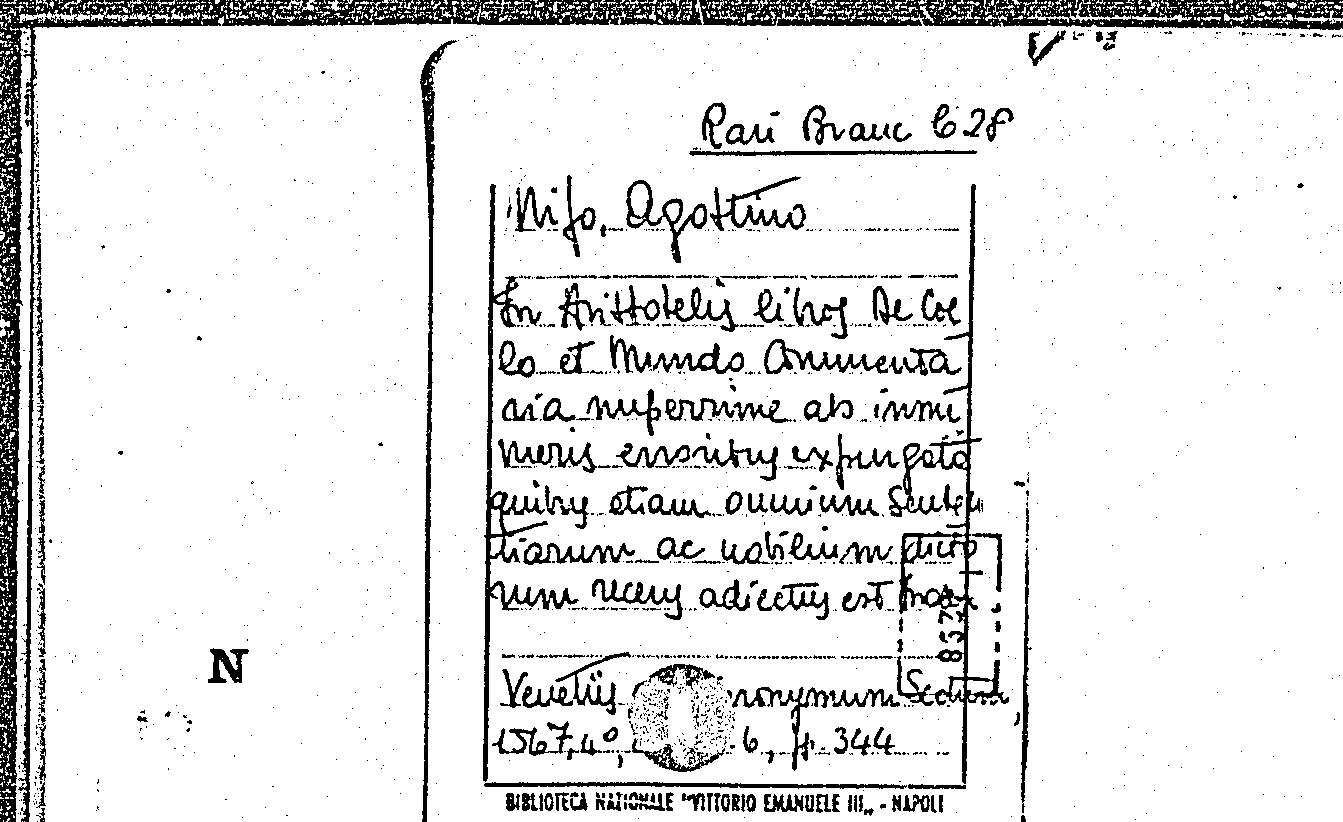 Rari Branc C 28
Nifo, Agostino
In Aristotelis libros De Coe
lo et Mundo Commenta
ria nuperrime ab innu
meris erroribus expurgata
quibus etiam omnium Senten
tiarum ac nobilium dicto
rum recens adiectus est
N
Venetiis ronymum Scotum,
1567, 4°, .6, pp. 344
BIBLIOTECA NAZIONALE "VITTORIO EMANUELE III„ - NAPOLI